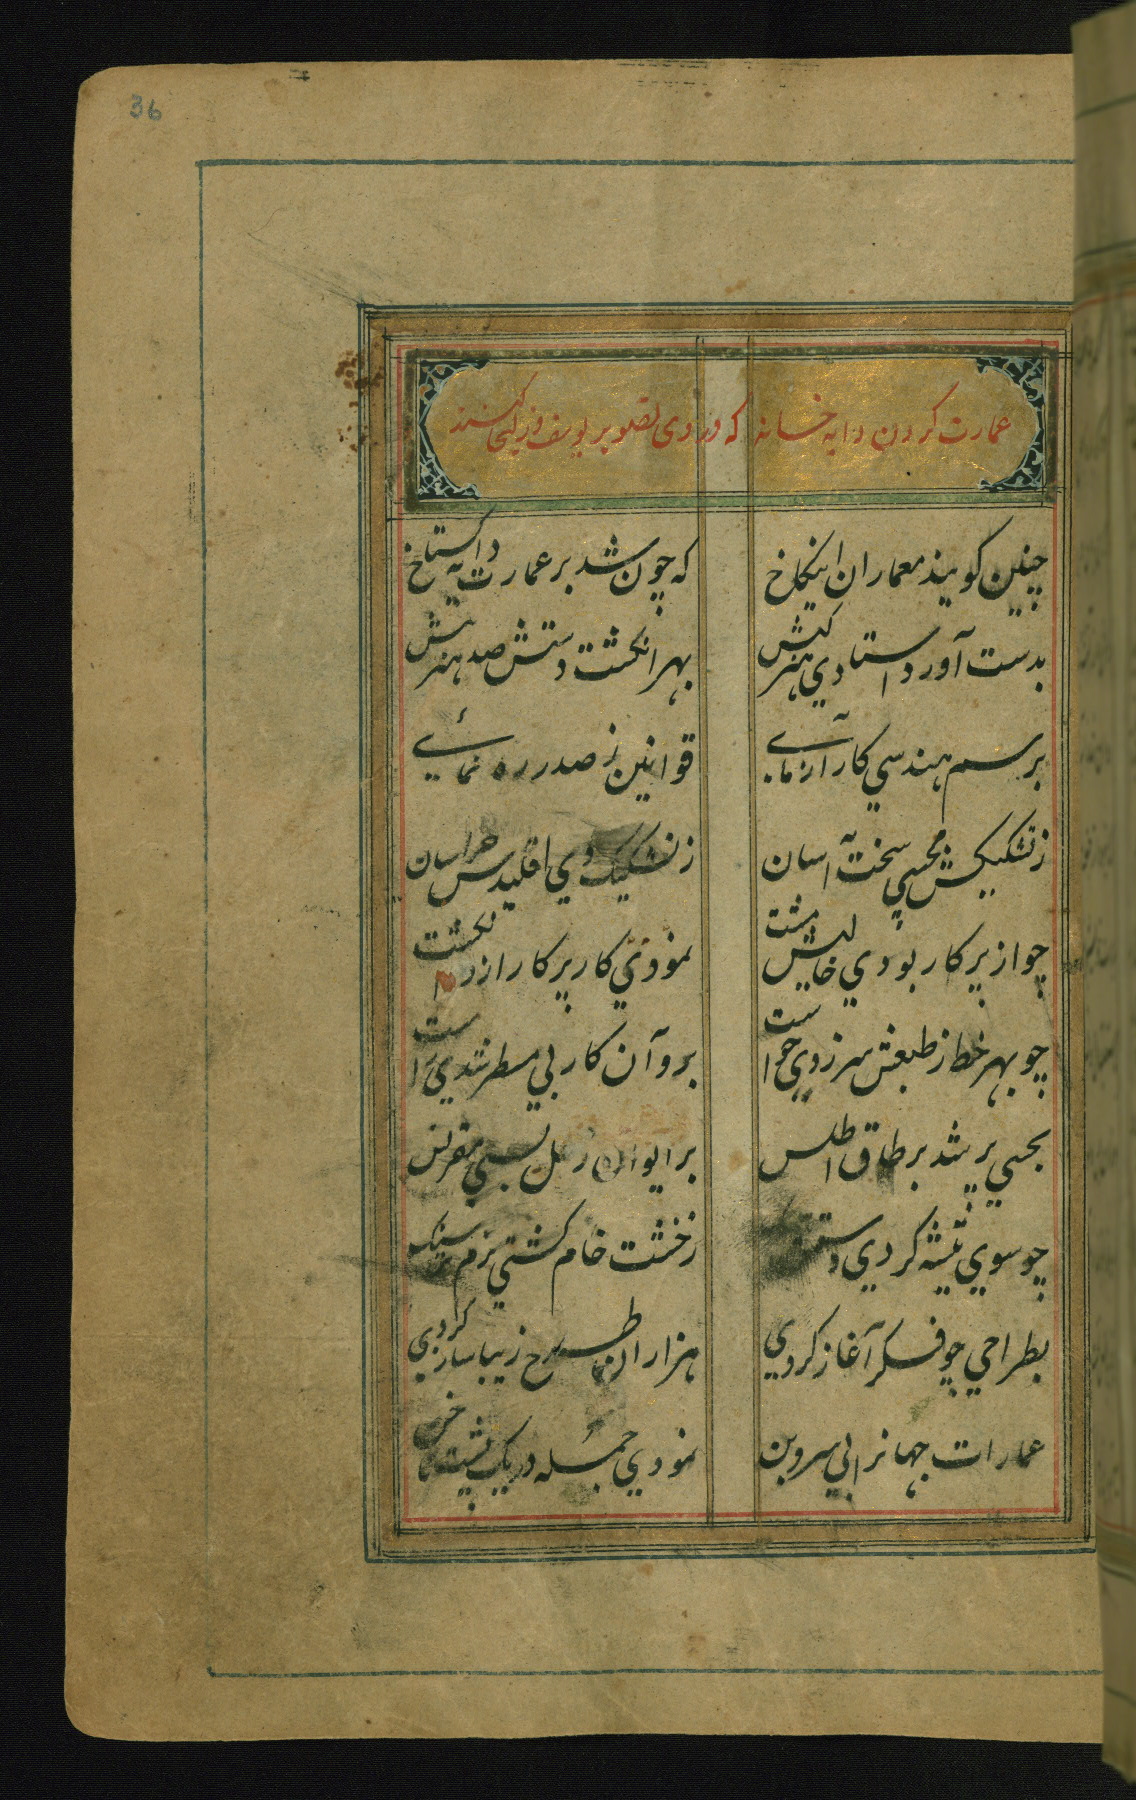 36
عمارت کردن دایه خانه که در وی تصویر یوسف و زلیخا کشند
چنین کویند معماران اینکاخ
که چون شد بر عمارت دایه کستاخ
بدست آورد استادی هنر کیش
بهر انکشت دستش صد هنر بیش
برسم هندسی کار آزمایی
قوانین رصد را رهنمائی
ز تشکیکش مجسطی سخت آسان
ز تشکیک وی اقلیدس هراسان
چو از پرکار بودی خالیش مشت
نمودی کار پرکار از دو انکشت
چو بهر خط ز طبعش سر زدی خواست
برو آن کار بی مسطر شدی راست
بجستی بر شد بر طاق اطلس
بر ایوان زحل بستی مقرنس
چو سوی تیشه کردی دستش
ز خشت خام کشتی نرم تر سنک
بطراحی چو فکر آغاز کردی
هزاران طرح زیبا ساز کردی
عمارات جهانرا بی سر و بن
نمودی جمله در یک پشت ناخن